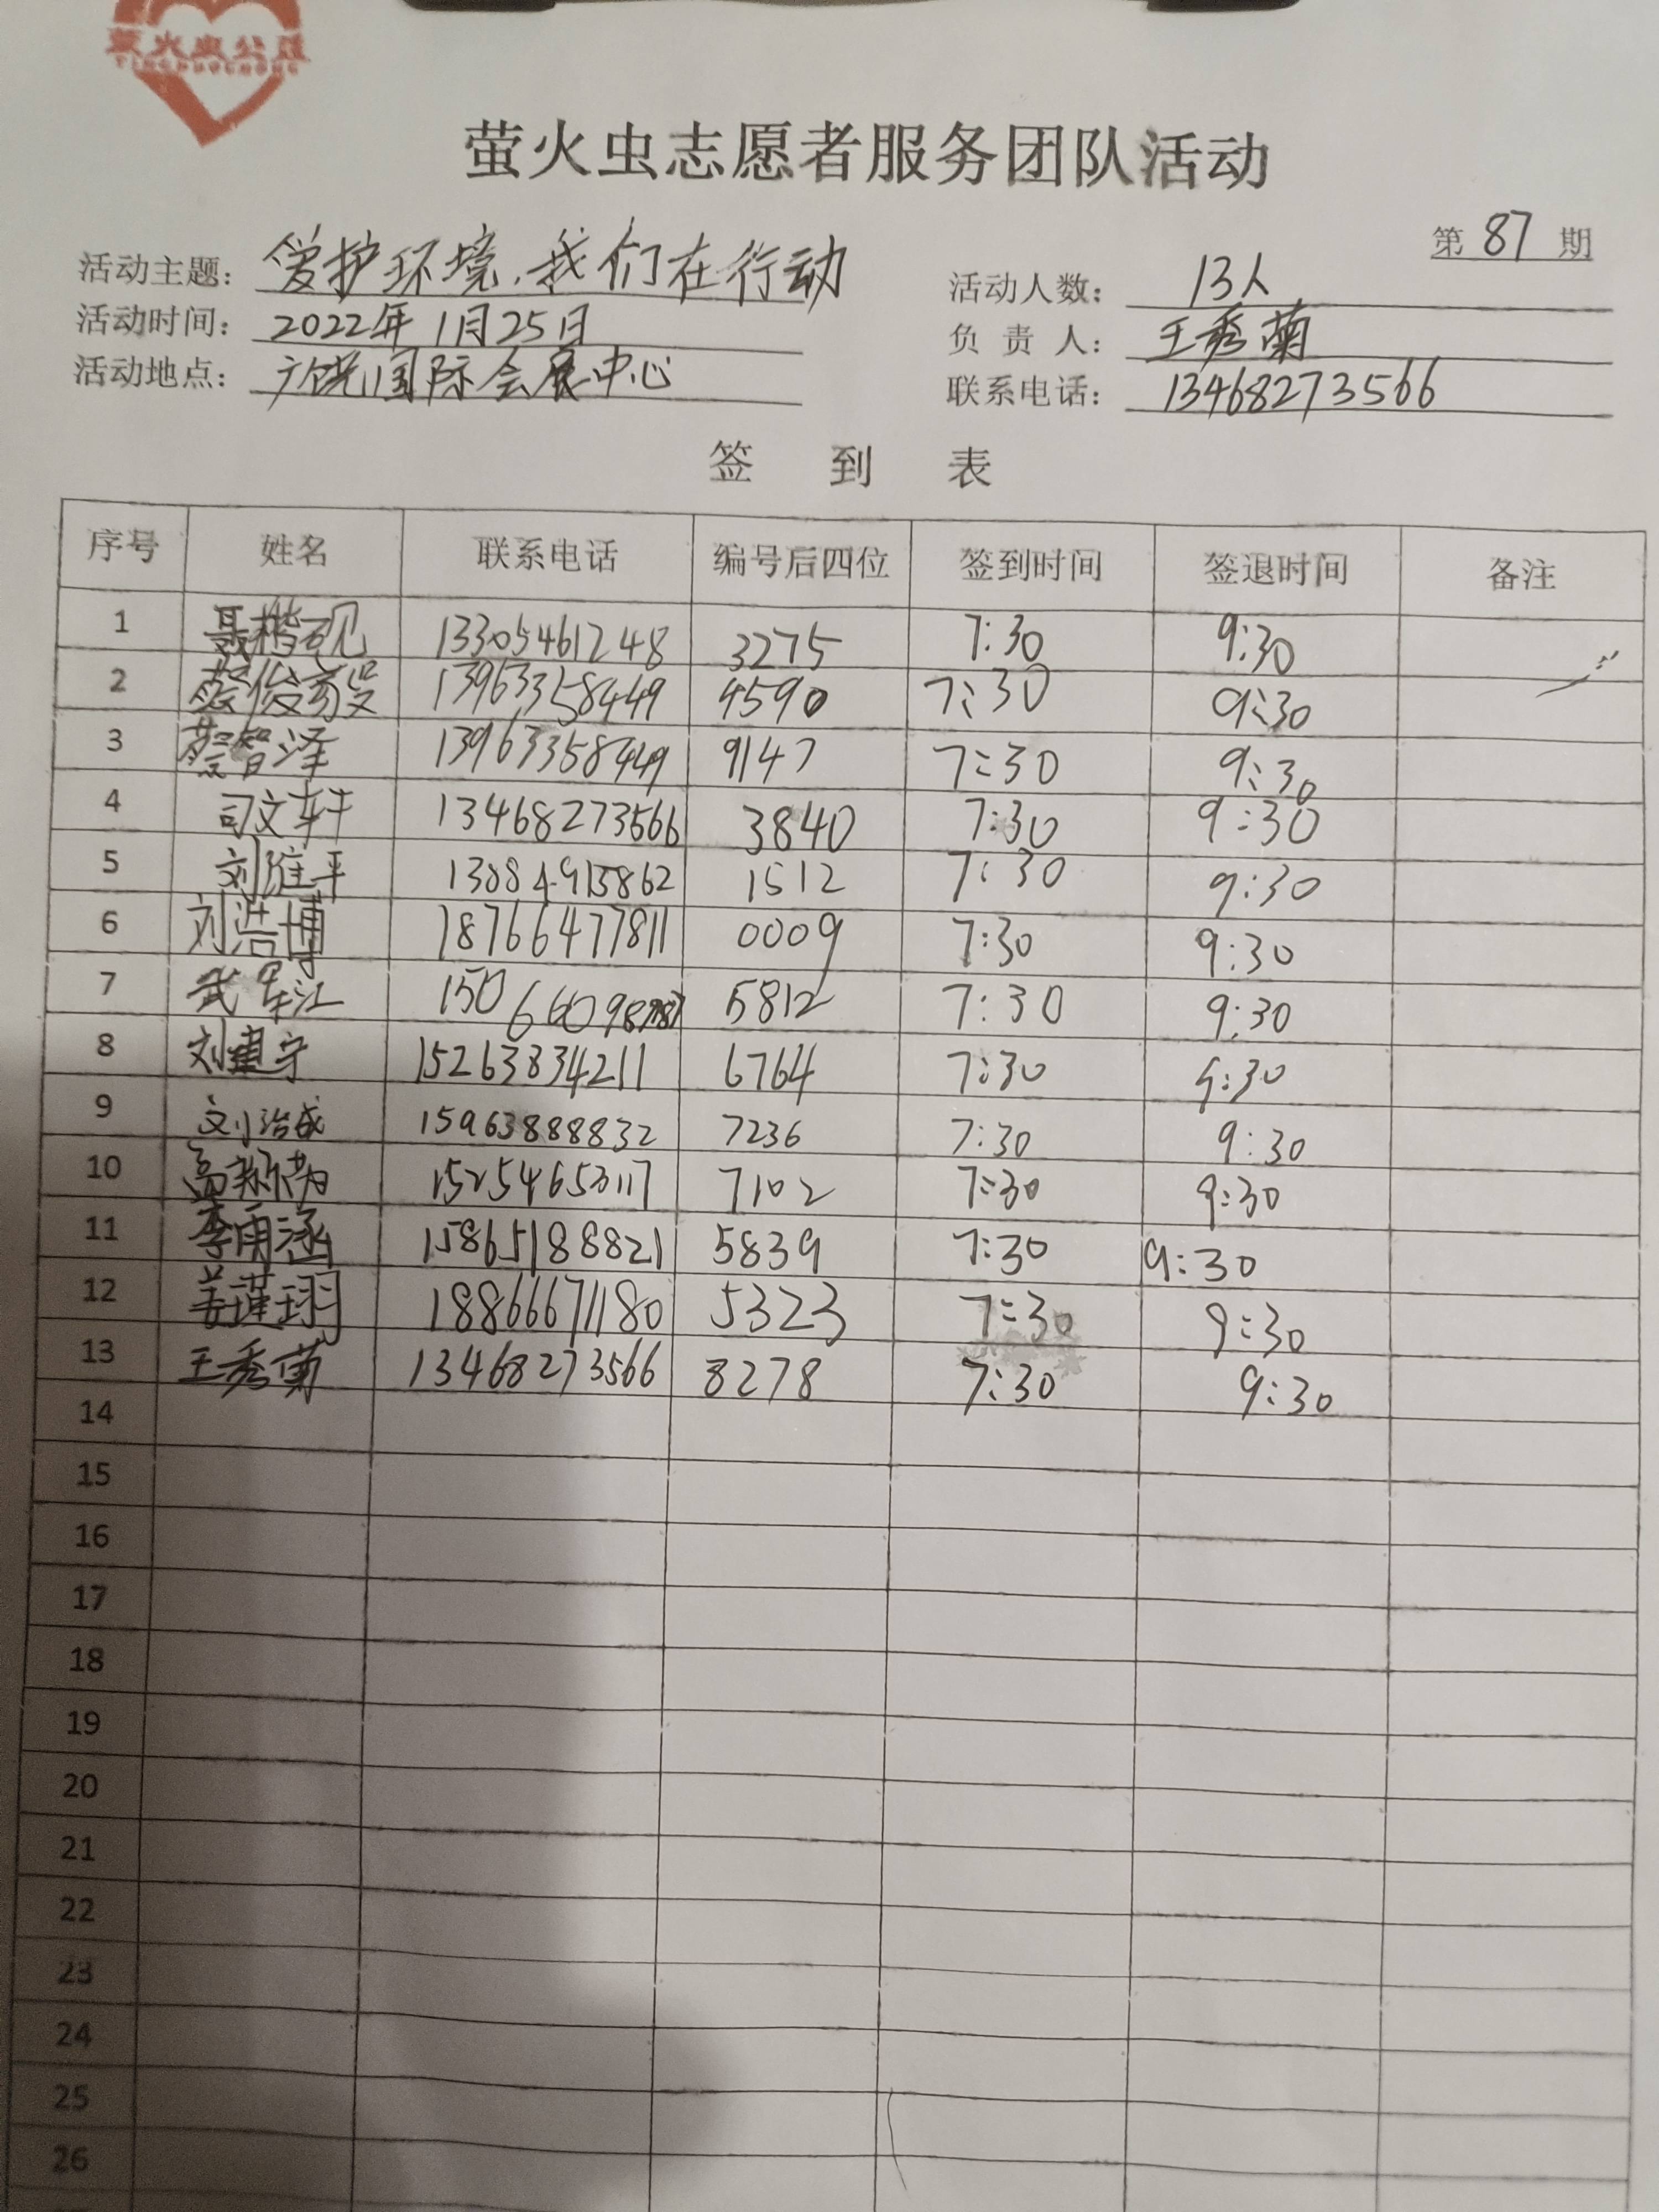 萤火虫公益
YINGHUOCHONG
萤火虫志愿者服务团队活动
第 87 期
活动主题: 爱护环境,我们在行动
活动人数: 13人
活动时间: 2022年1月25日
负 责 人: 王秀菊
活动地点: 广饶国际会展中心
联系电话: 13468273566
签 到 表
序号 姓名 联系电话 编号后四位 签到时间 签退时间 备注
1 聂楷砚 13305461248 3275 7:30 9:30
2 蔡俊 13963358449 4590 7:30 9:30
3 蔡智泽 13963358449 9147 7:30 9:30
4 司文轩 13468273566 3840 7:30 9:30
5 刘维平 13084913862 1512 7:30 9:30
6 刘浩博 18766477811 0009 7:30 9:30
7 武军江 5812 7:30 9:30
8 刘建宁 15263834211 6764 7:30 9:30
9 刘治成 15963888832 7236 7:30 9:30
10 高 15254653117 7102 7:30 9:30
11 李雨涵 15865188821 5839 7:30 9:30
12 姜瑾翊 18866671180 5323 7:30 9:30
13 王秀菊 13468273566 8278 7:30 9:30
14
15
16
17
18
19
20
21
22
23
24
25
26